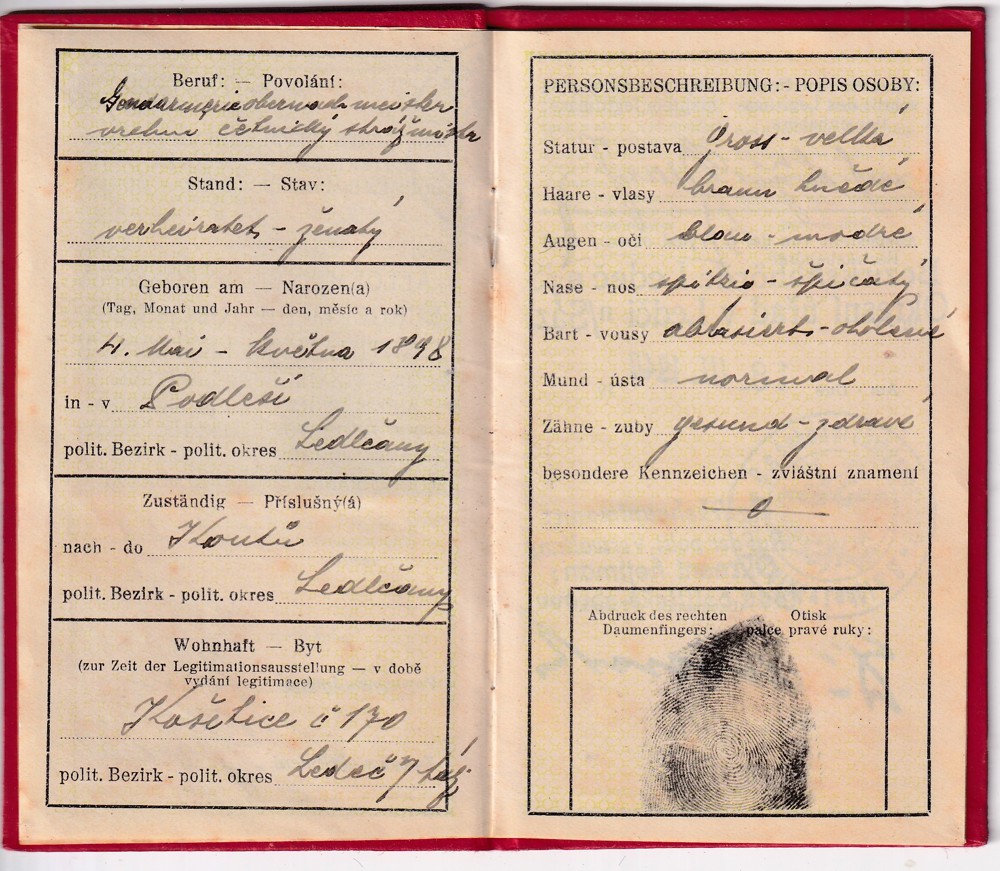 Beruf: — Povolání:
Gendarmerieoberwachtmeister
vrchní četnický strážmistr
Stand: — Stav:
verheiratet - ženatý
Geboren am — Narozen(a)
(Tag, Monat und Jahr — den, měsíc a rok)
4. Mai - května 1898
in - v Podlesí
polit. Bezirk - polit. okres Sedlčany
Zuständig — Příslušný(á)
nach - do
polit. Bezirk - polit. okres Sedlčany
Wohnhaft — Byt
(zur Zeit der Legitimationsausstellung — v době
vydání legitimace)
Košetice č 170
polit. Bezirk - polit. okres Ledeč
PERSONSBESCHREIBUNG: - POPIS OSOBY:
Statur - postava gross - velká
Haare - vlasy braun hnědé
Augen - oči blau - modré
Nase - nos spitzig - špičatý
Bart - vousy abrasiert - oholené
Mund - ústa normal
Zähne - zuby gesund - zdravé
besondere Kennzeichen - zvláštní znamení
— 0 —
Abdruck des rechten Otisk
Daumenfingers: palce pravé ruky: